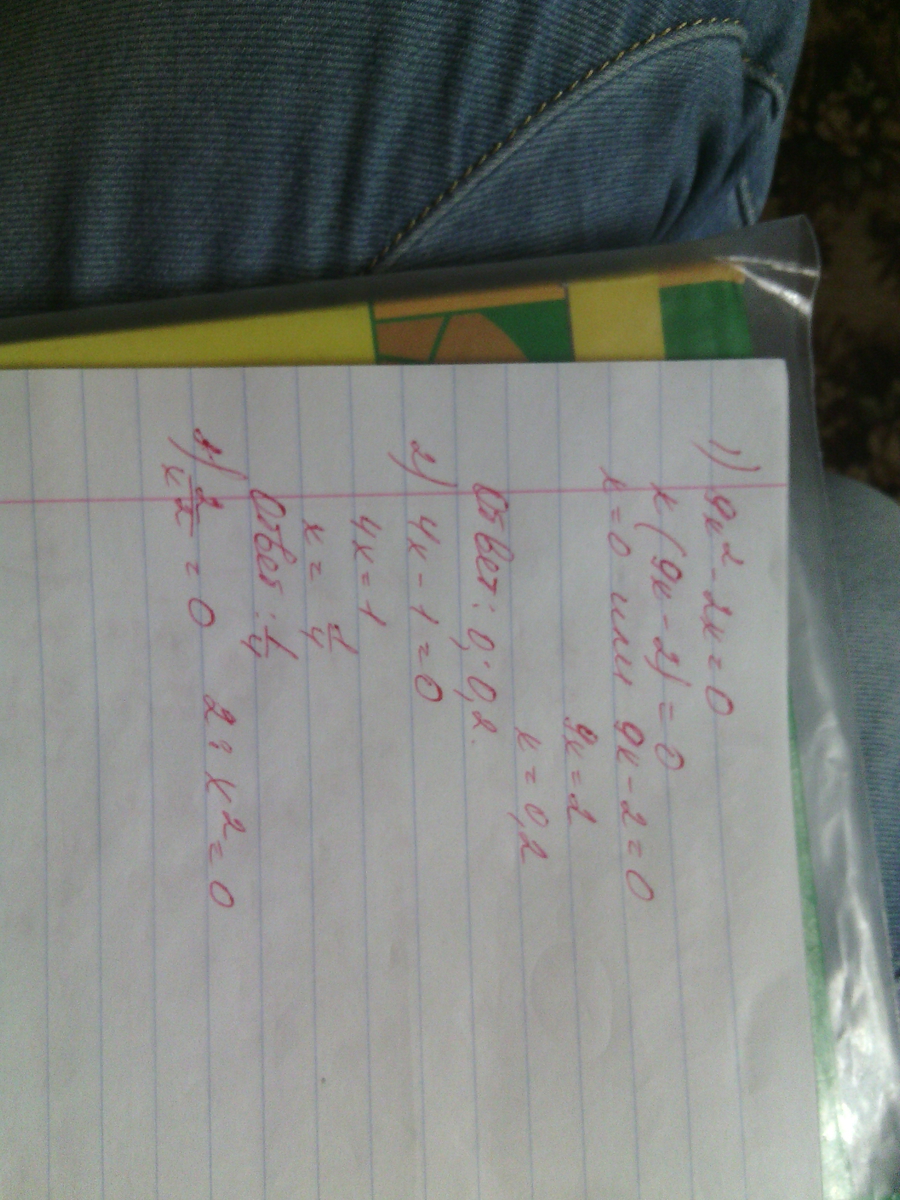 1) 9x² - 2x = 0
x(9x - 2) = 0
x = 0 или 9x - 2 = 0
9x = 2
x = 0,2
Ответ: 0; 0,2.
2) 4x - 1 = 0
4x = 1
x = 1/4
Ответ: 1/4
3) 2/x² = 0 2 : x2 = 0